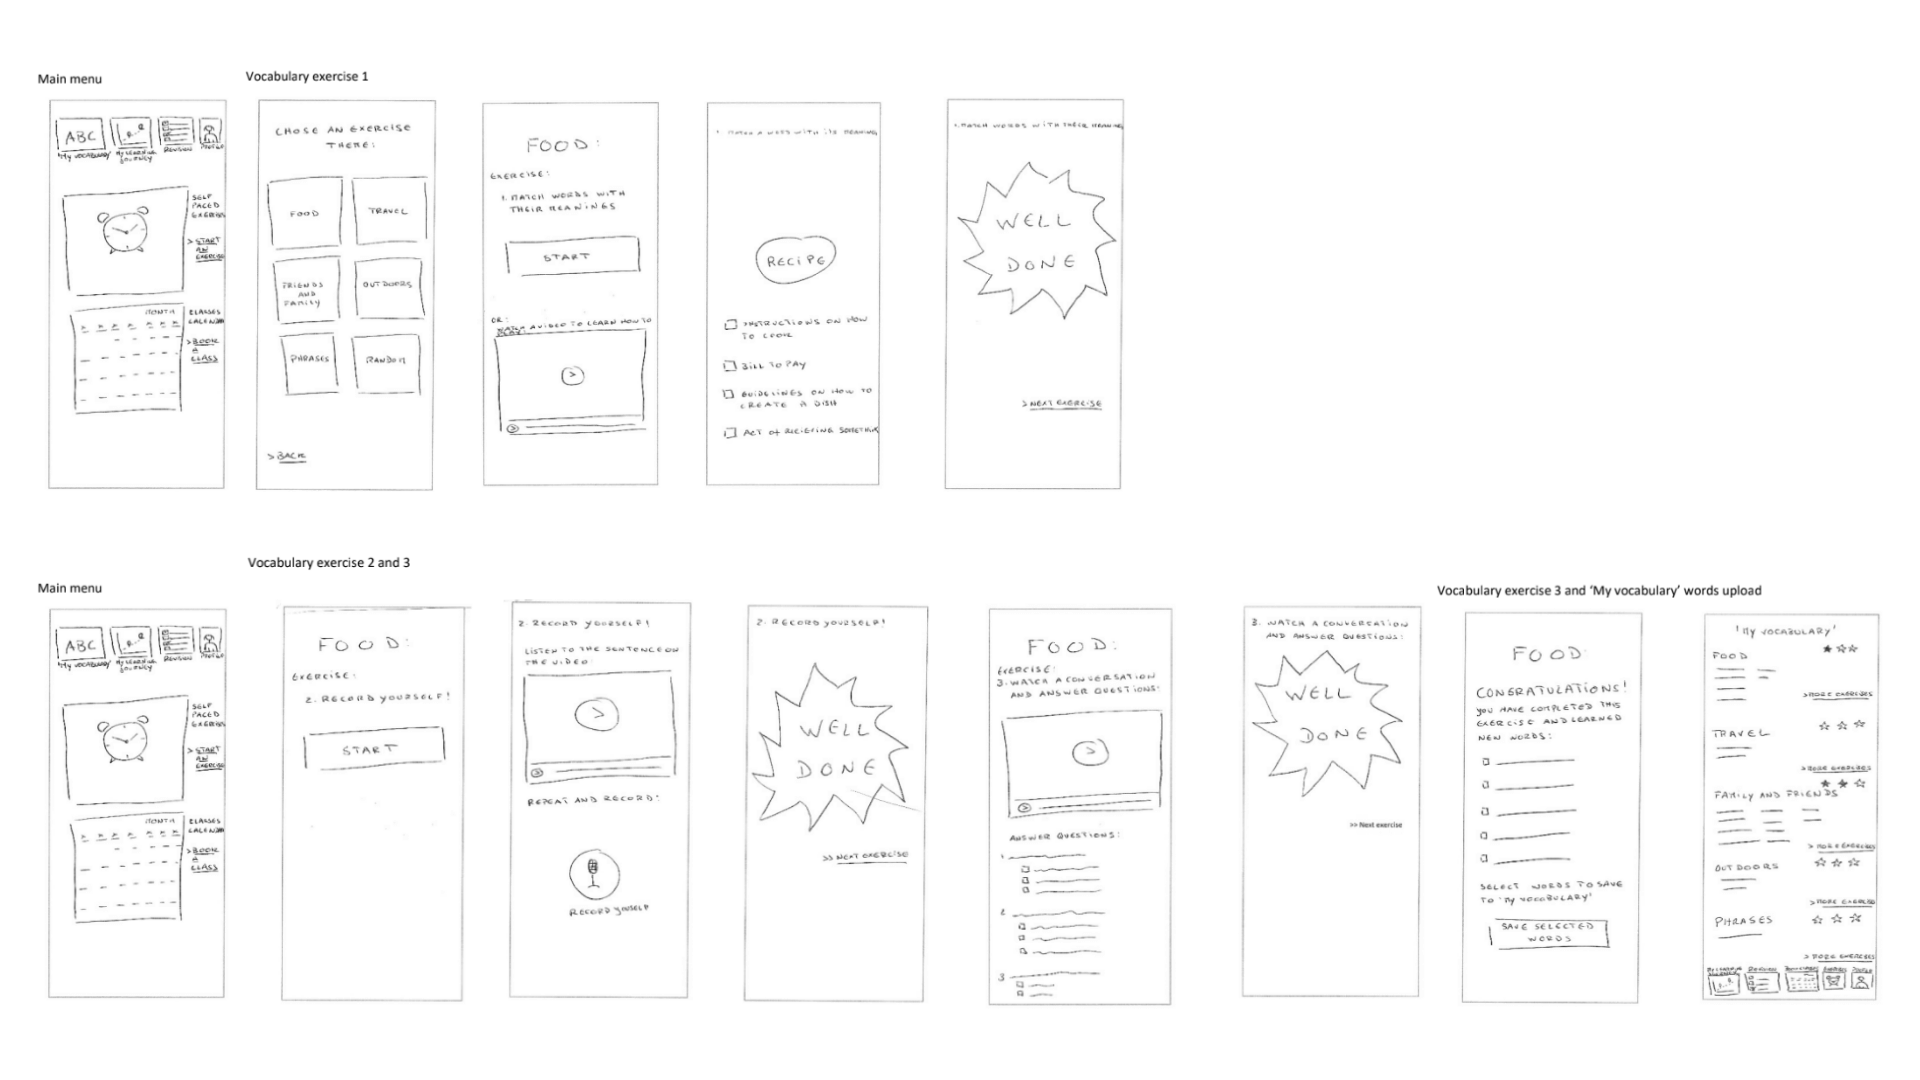 Main menu
Vocabulary exercise 1
ABC
'My vocabulary'
My learning
journey
Revision
Profile
SELF
PACED
> START
AN
EXERCISE
MONTH
CLASSES
CALENDAR
> BOOK
A
CLASS
CHOSE AN EXERCISE
THEME:
FOOD
TRAVEL
FRIENDS
AND
FAMILY
OUTDOORS
PHRASES
RANDOM
> BACK
FOOD:
EXERCISE:
1. MATCH WORDS WITH
THEIR MEANINGS
START
OR:
WATCH A VIDEO TO LEARN HOW TO
PLAY:
1. MATCH A WORD WITH ITS MEANING
RECIPE
INSTRUCTIONS ON HOW
TO COOK
BILL TO PAY
GUIDELINES ON HOW TO
CREATE A DISH
ACT OF RECIEFING SOMETHING
1. MATCH WORDS WITH THEIR MEANING
WELL
DONE
> NEXT EXERCISE
Vocabulary exercise 2 and 3
Main menu
Vocabulary exercise 3 and ‘My vocabulary’ words upload
ABC
'My vocabulary'
My learning
journey
Revision
Profile
SELF
PACED
> START
AN
EXERCISE
MONTH
CLASSES
CALENDAR
> BOOK
A
CLASS
FOOD:
EXERCISE:
2. RECORD YOURSELF!
START
2. RECORD YOURSELF!
LISTEN TO THE SENTENCE ON
THE VIDEO:
REPEAT AND RECORD:
RECORD YOUSELF
2. RECORD YOURSELF!
WELL
DONE
>> NEXT EXERCISE
FOOD:
EXERCISE:
3. WATCH A CONVERSATION
AND ANSWER QUESTIONS:
ANSWER QUESTIONS:
1
2
3
3. WATCH A CONVERSATION
AND ANSWER QUESTIONS:
WELL
DONE
>> Next exercise
FOOD:
CONGRATULATIONS!
YOU HAVE COMPLETED THIS
EXERCISE AND LEARNED
NEW WORDS:
SELECT WORDS TO SAVE
TO 'MY VOCABULARY'
SAVE SELECTED
WORDS
'MY VOCABULARY'
FOOD
> MORE EXERCISES
TRAVEL
> MORE EXERCISES
FAMILY AND FRIENDS
> MORE EXERCISES
OUTDOORS
> MORE EXERCISES
PHRASES
> MORE EXERCISES